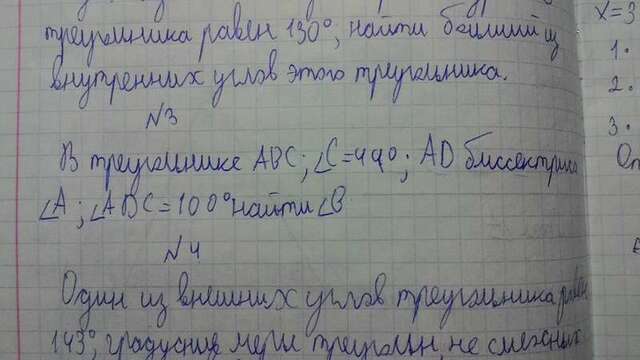 треугольника равен 130°, найти больший из
внутренних углов этого треугольника.
N3
В треугольнике ABC; ∠C=49°; AD биссектриса
∠A; ∠ADC=100° найти ∠B
N4
Один из внешних углов треугольника равен
143°, градусные меры треугольн. не смежных
x=3
1.
2.
3.
От